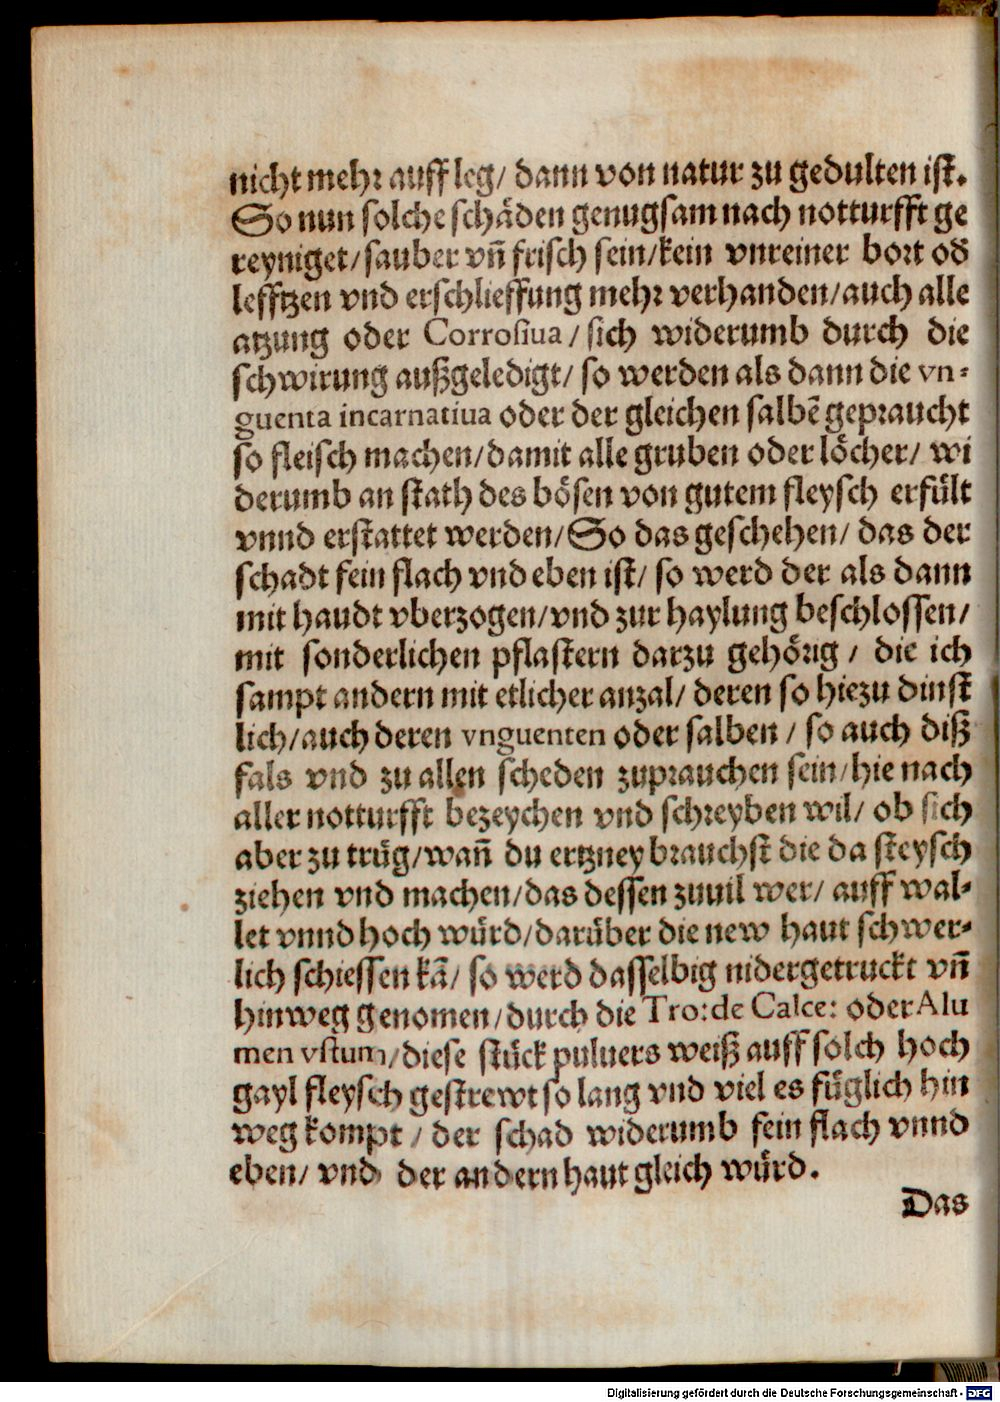 nicht mehr auff leg/ dann von natur zu gedulten ist.
So nun solche schäden genugsam nach notturfft ge
reyniget/ sauber vñ frisch sein/ kein vnreiner bort od̄
lefftzen vnd erschlieffung mehr verhanden/ auch alle
atzung oder Corrosiua / sich widerumb durch die
schwirung außgeledigt/ so werden als dann die vn-
guenta incarnatiua oder der gleichen salbē gepraucht
so fleisch machen/ damit alle gruben oder löcher/ wi
derumb an stath des bösen von gutem fleysch erfült
vnnd erstattet werden/ So das geschehen/ das der
schadt fein flach vnd eben ist/ so werd der als dann
mit haudt vberzogen/ vnd zur haylung beschlossen/
mit sonderlichen pflastern darzu gehörig / die ich
sampt andern mit etlicher anzal/ deren so hiezu dinst
lich/ auch deren vnguenten oder salben / so auch diß
fals vnd zu allen scheden zuprauchen sein/ hie nach
aller notturfft bezeychen vnd schreyben wil/ ob sich
aber zu trüg/ wañ du ertzney brauchst die da fleysch
ziehen vnd machen/ das dessen zuuil wer/ auff wal-
let vnnd hoch würd/ darüber die new haut schwer-
lich schiessen kā/ so werd dasselbig nidergetruckt vñ
hinweg genomen/ durch die Tro: de Calce: oder Alu
men vstum/ diese stück puluers weiß auff solch hoch
gayl fleysch gestrewt so lang vnd viel es füglich hin
weg kompt / der schad widerumb fein flach vnnd
eben/ vnd der andern haut gleich würd.
Das
Digitalisierung gefördert durch die Deutsche Forschungsgemeinschaft - DFG